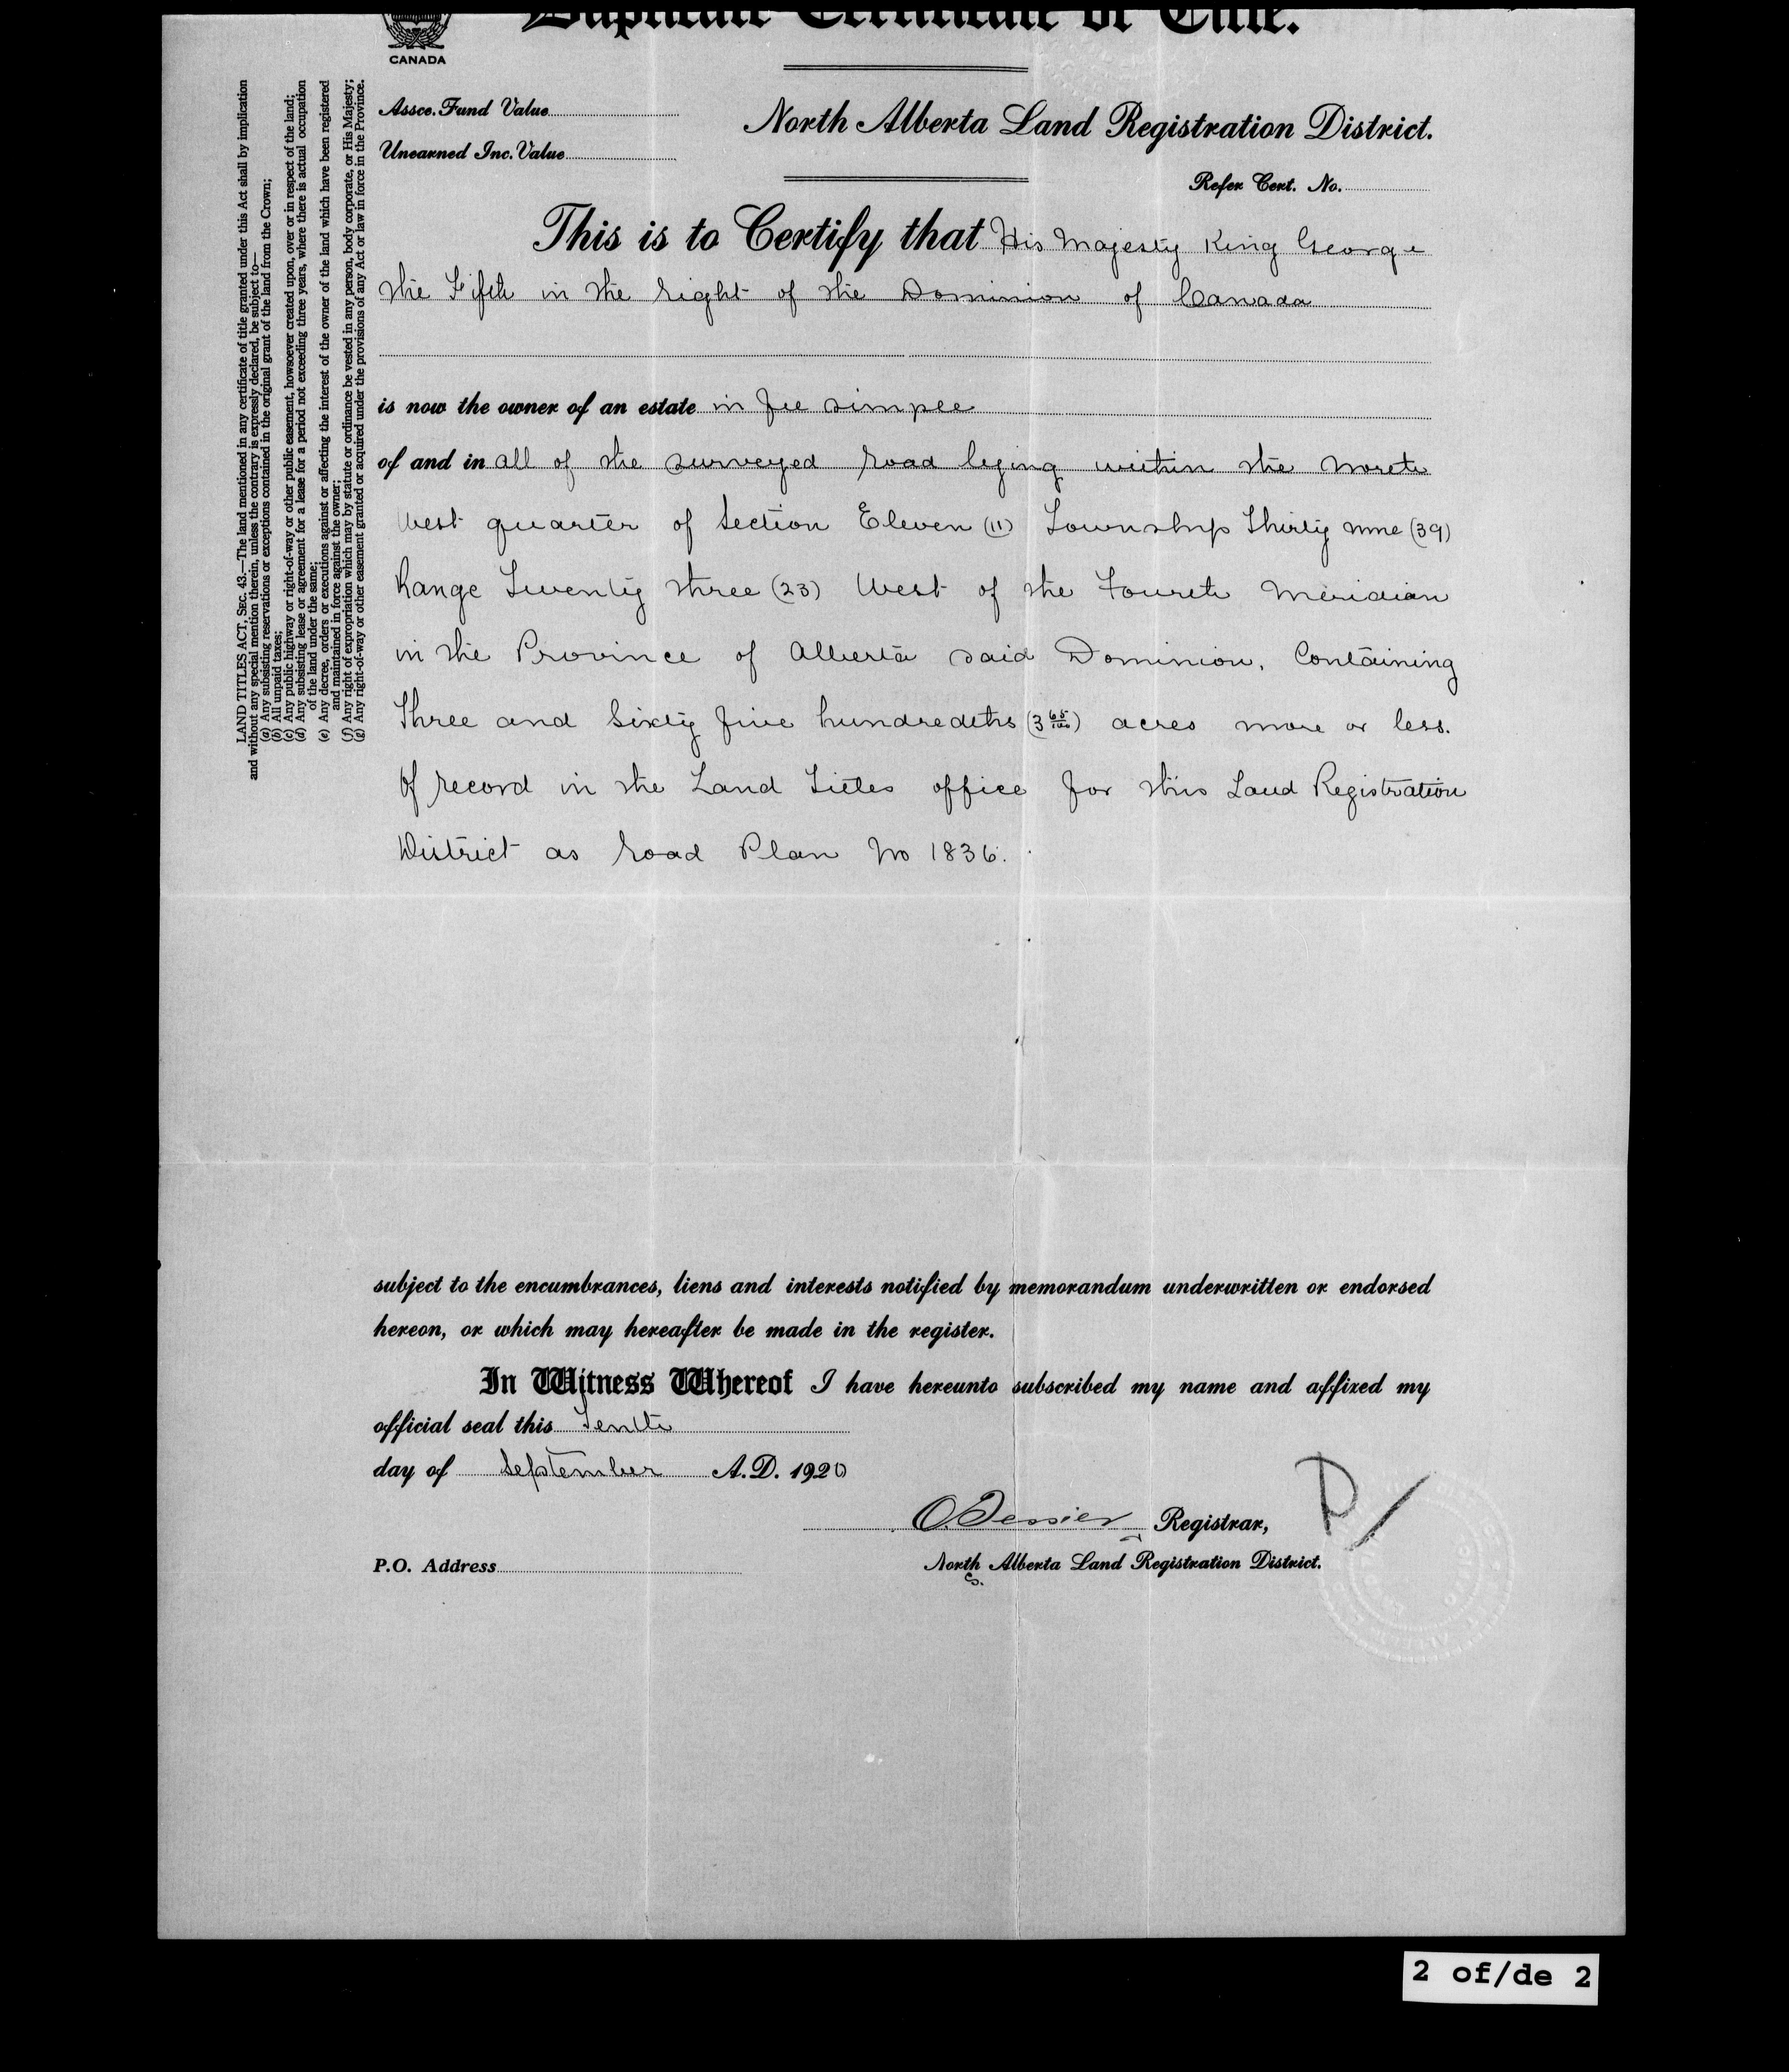 Duplicate Certificate of Title.
CANADA
Assce. Fund Value
Unearned Inc. Value
North Alberta Land Registration District.
Refer Cert. No.
This is to Certify that His Majesty King George
the Fifth in the right of the Dominion of Canada
is now the owner of an estate in fee simple
of and in all of the surveyed road lying within the North
West quarter of Section Eleven (11) Township Thirty nine (39)
Range Twenty three (23) West of the Fourth Meridian
in the Province of Alberta said Dominion, Containing
Three and Sixty five hundredths (3 65/100) acres more or less.
Of record in the Land Titles office for this Land Registration
District as road Plan No 1836.
subject to the encumbrances, liens and interests notified by memorandum underwritten or endorsed
hereon, or which may hereafter be made in the register.
In Witness Whereof I have hereunto subscribed my name and affixed my
official seal this Tenth
day of September A.D. 1920
O. Tessier Registrar,
P.O. Address
North Alberta Land Registration District.
S.
LAND TITLES ACT, SEC. 43.—The land mentioned in any certificate of title granted under this Act shall by implication
and without any special mention therein, unless the contrary is expressly declared, be subject to—
(a) Any subsisting reservations or exceptions contained in the original grant of the land from the Crown;
(b) All unpaid taxes;
(c) Any public highway or right-of-way or other public easement, howsoever created upon, over or in respect of the land;
(d) Any subsisting lease or agreement for a lease for a period not exceeding three years, where there is actual occupation
of the land under the same;
(e) Any decree, orders or executions against or affecting the interest of the owner of the land which have been registered
and maintained in force against the owner;
(f) Any right of expropriation which may by statute or ordinance be vested in any person, body corporate, or His Majesty;
(g) Any right-of-way or other easement granted or acquired under the provisions of any Act or law in force in the Province.
2 of/de 2